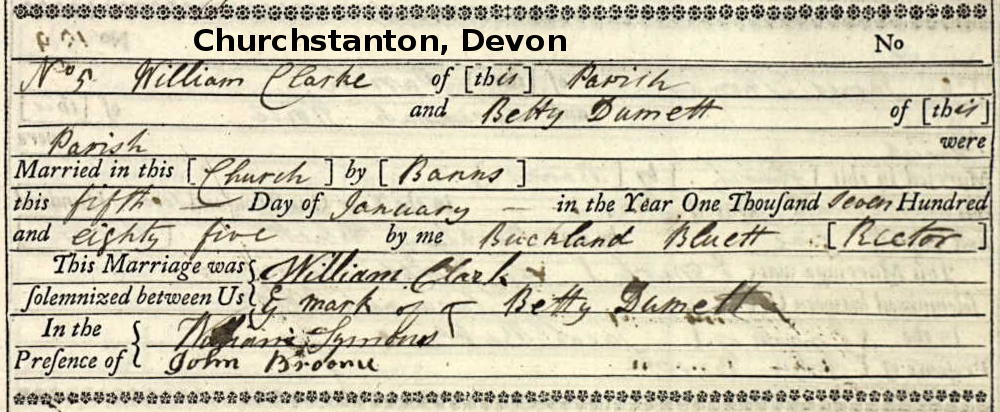 Churchstanton, Devon
No
No 5 William Clarke of [this] Parish
and Betty Dumett of [this]
Parish were
Married in this [Church] by [Banns]
this fifth Day of January — in the Year One Thouſand seven Hundred
and eighty five by me Buckland Bluett [Rector]
This Marriage was { William Clark
ſolemnized between Us { mark of Betty Dumett
In the { Symons
Preſence of { John Broome